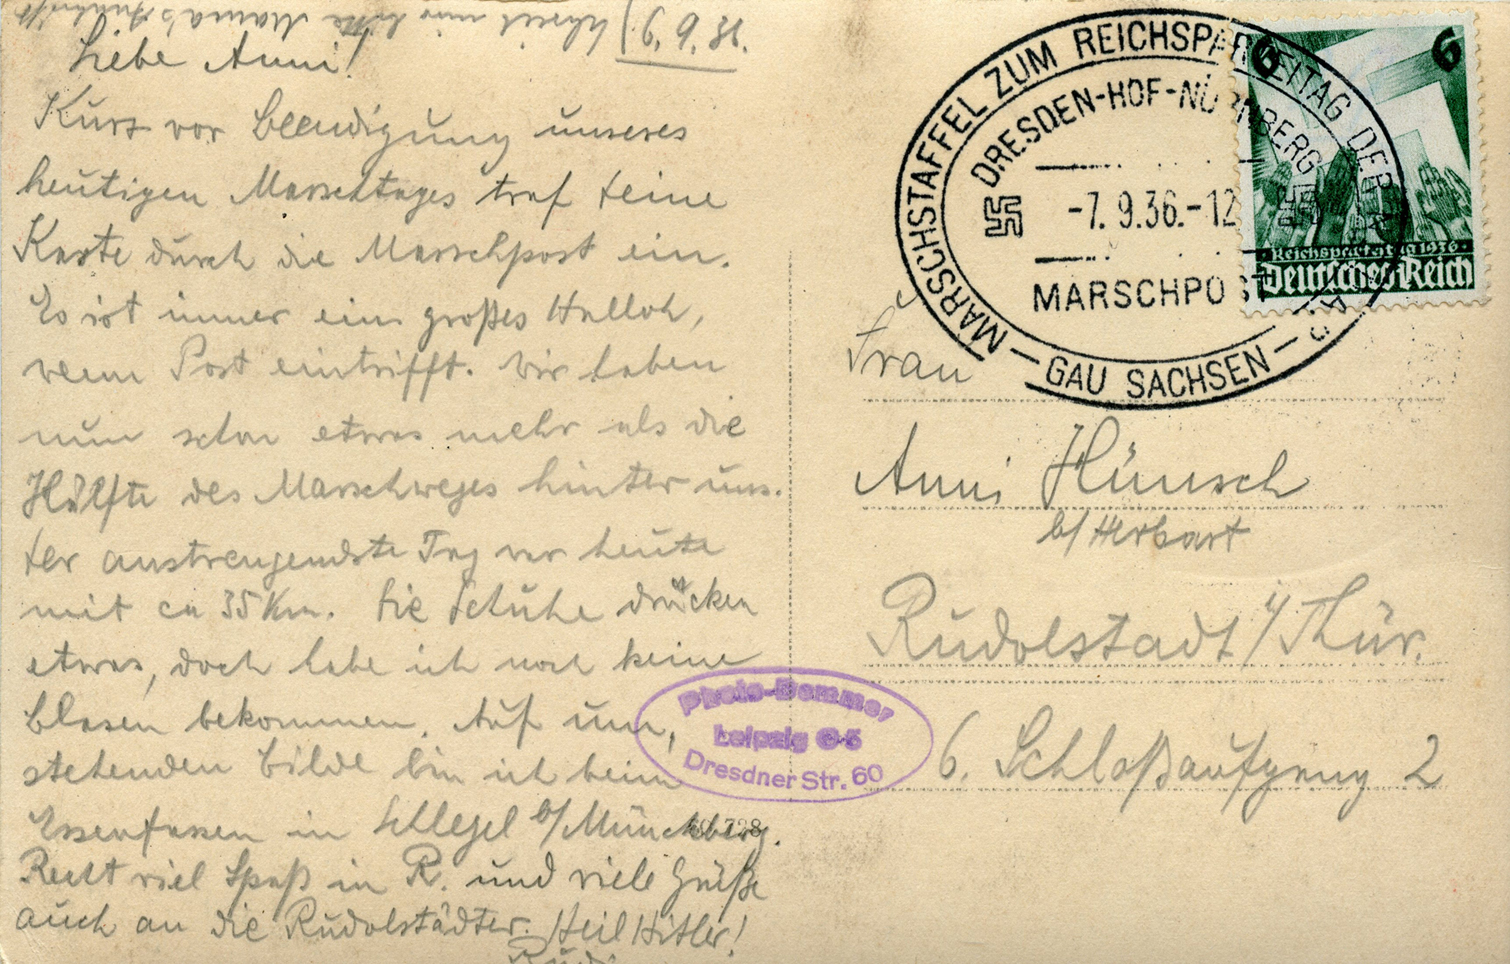 6.9.36.
Liebe Anni!
Kurz vor Beendigung unseres
heutigen Marschtages traf Deine
Karte durch die Marschpost ein.
Es ist immer ein großes Halloh,
wenn Post eintrifft. Wir haben
nun schon etwas mehr als die
Hälfte des Marschweges hinter uns.
Der anstrengendste Tag war heute
mit ca 35 Km. Die Schuhe drücken
etwas, doch habe ich noch keine
Blasen bekommen. Auf um,
stehenden Bilde bin ich beim
Essenfassen in Schlegel b/Münchberg.
Recht viel Spaß in R. und viele Grüße
auch an die Rudolstädter. Heil Hitler!
Rudi
MARSCHSTAFFEL ZUM REICHSPARTEITAG DER
DRESDEN-HOF-NÜRNBERG
-7.9.36.-12
MARSCHPOST
GAU SACHSEN
6 6
Reichsparteitag 1936
Deutsches Reich
Frau
Anni Hünsch
b/ Herbart
Rudolstadt i/Thür.
6. Schloßaufgang 2
Photo-Demmer
Leipzig O 5
Dresdner Str. 60